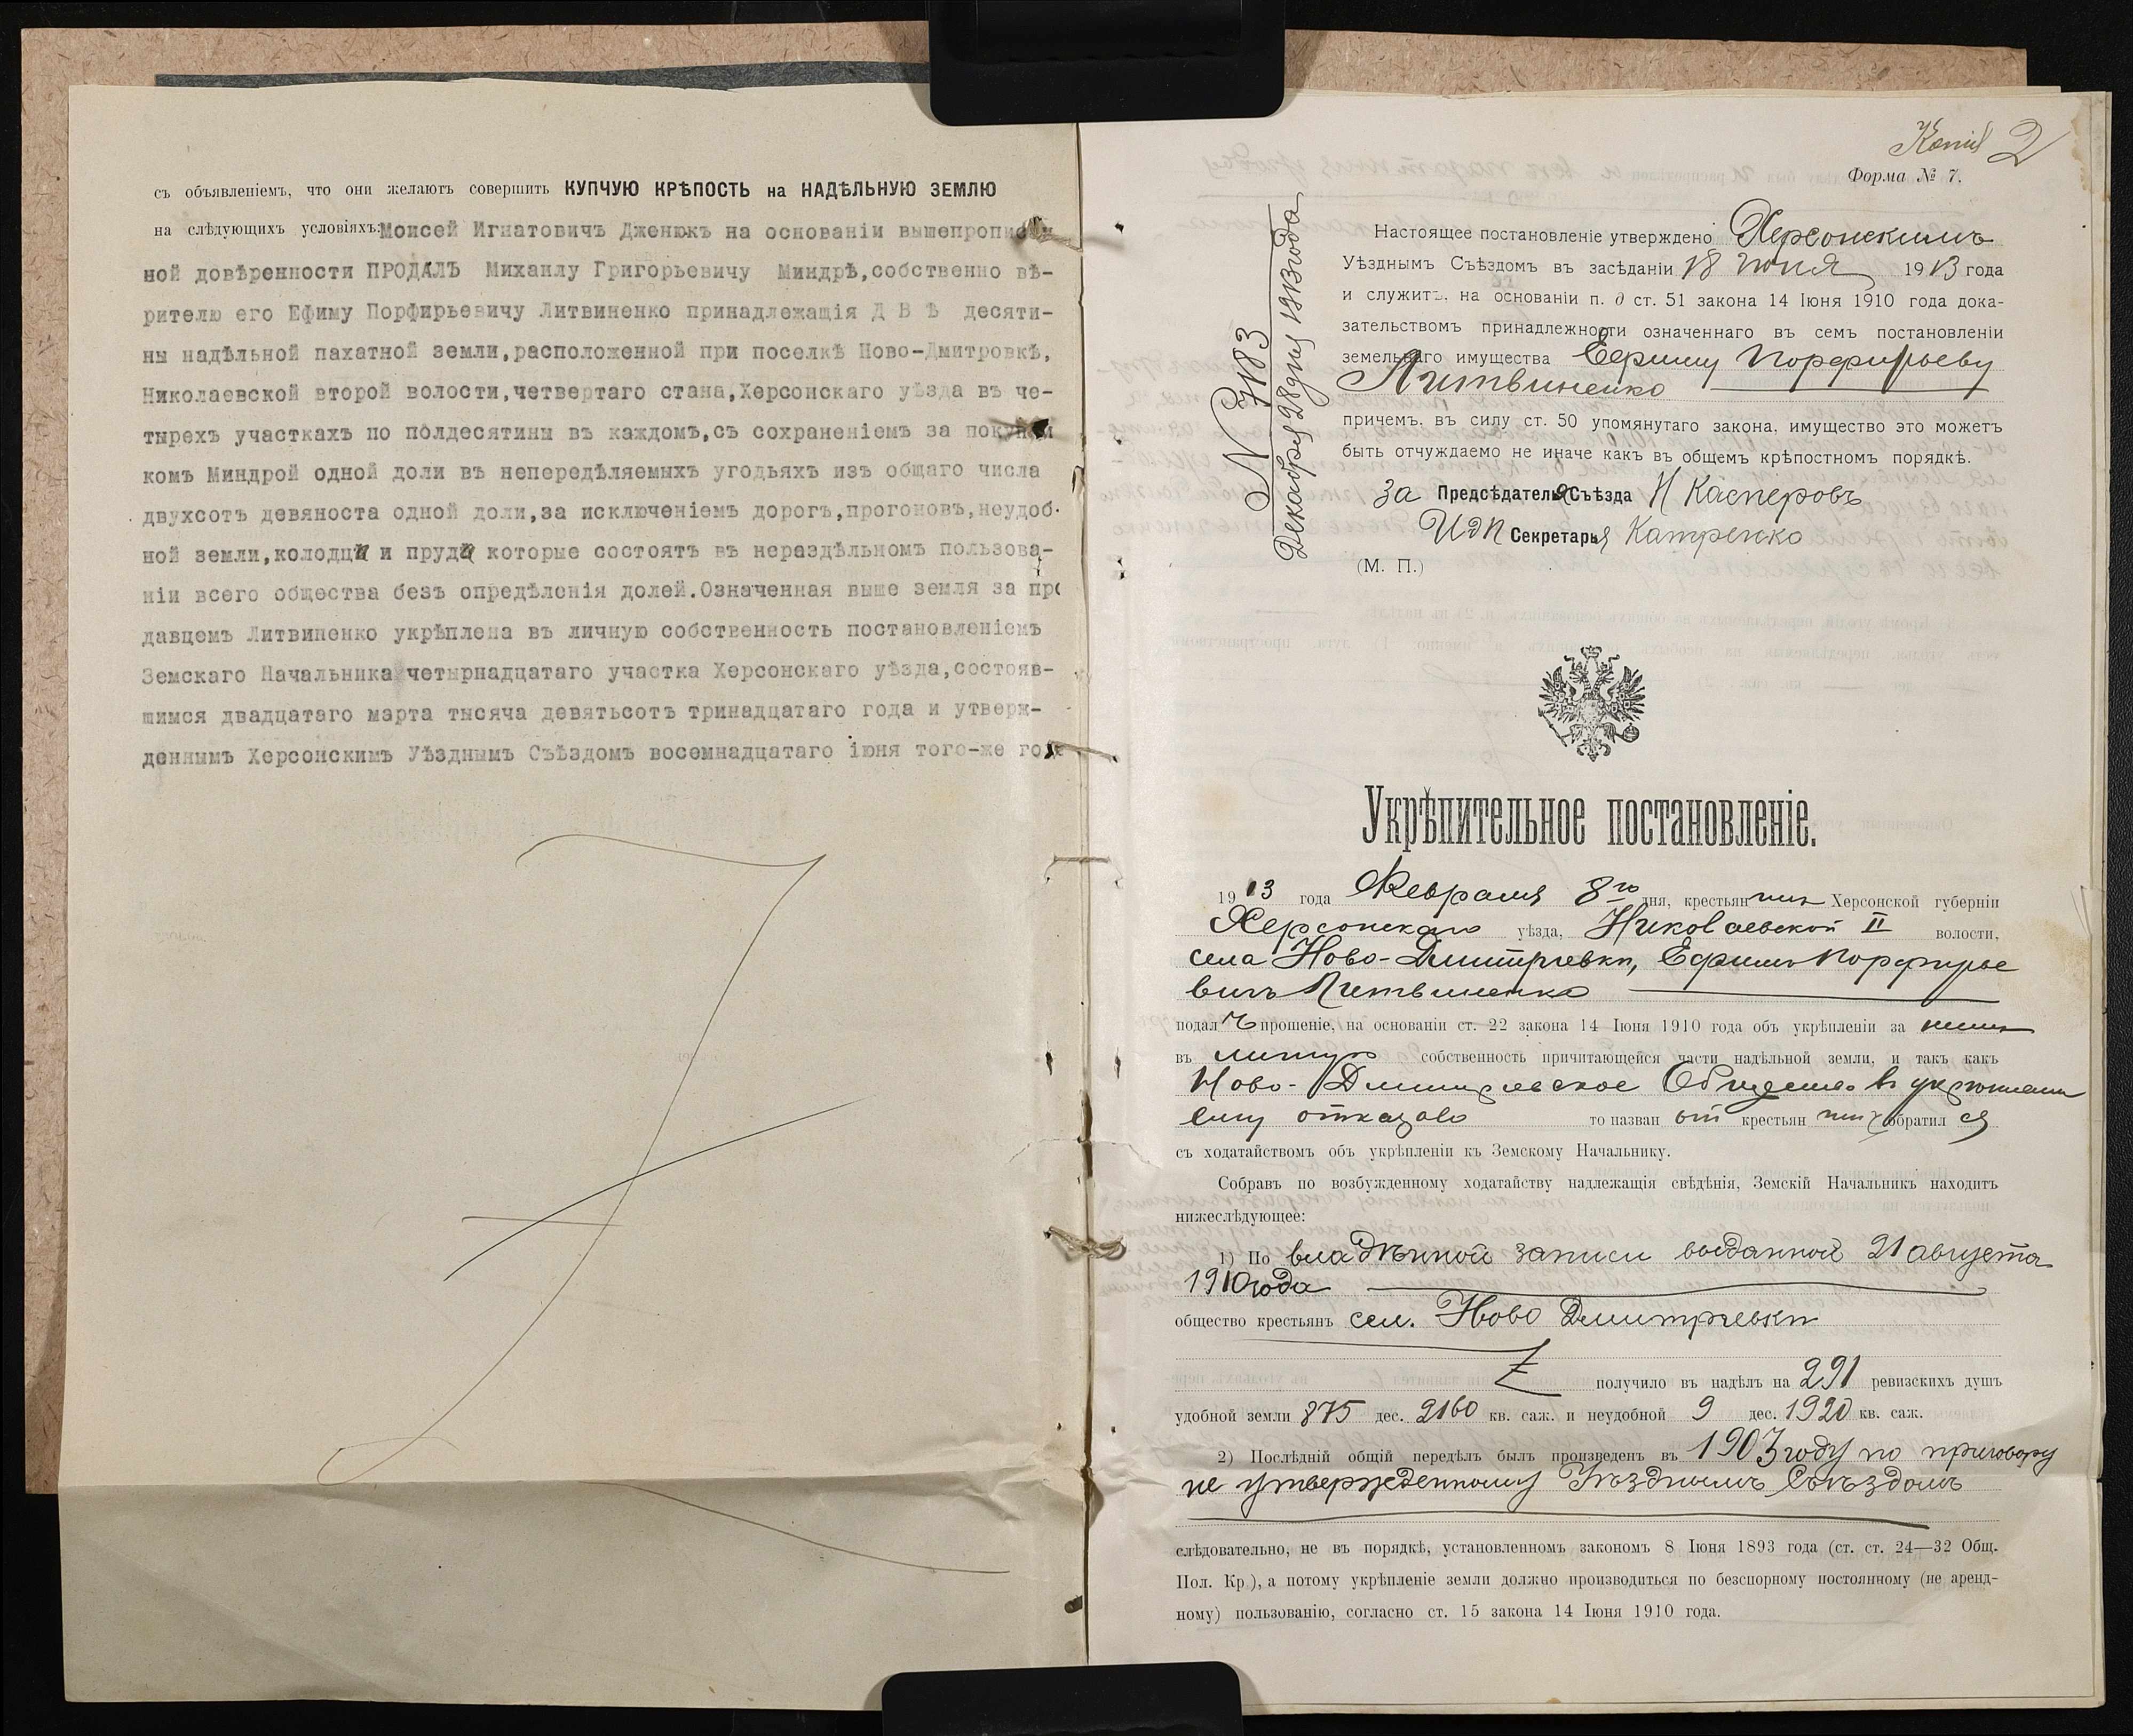 съ объявленіемъ, что они желаютъ совершить КУПЧУЮ КРѢПОСТЬ на НАДѢЛЬНУЮ ЗЕМЛЮ
на слѣдующихъ условіяхъ: Моисей Игнатовичъ Дженюкъ на основаніи вышепрописан
ной довѣренности ПРОДАЛЪ Михаилу Григорьевичу Миндрѣ, собственно вѣ-
рителю его Ефиму Порфирьевичу Литвиненко принадлежащія Д В Ѣ десяти-
ны надѣльной пахатной земли, расположенной при поселкѣ Ново-Дмитровкѣ,
Николаевской второй волости, четвертаго стана, Херсонскаго уѣзда въ че-
тырехъ участкахъ по полдесятины въ каждомъ, съ сохраненіемъ за покупщи
комъ Миндрой одной доли въ непередѣляемыхъ угодьяхъ изъ общаго числа
двухсотъ девяноста одной доли, за исключеніемъ дорогъ, прогоновъ, неудоб-
ной земли, колодцы и пруды которые состоятъ въ нераздѣльномъ пользова-
ніи всего общества безъ опредѣленія долей. Означенная выше земля за про
давцемъ Литвиненко укрѣплена въ личную собственность постановленіемъ
Земскаго Начальника четырнадцатаго участка Херсонскаго уѣзда, состояв-
шимся двадцатаго марта тысяча девятьсотъ тринадцатаго года и утверж-
деннымъ Херсонскимъ Уѣзднымъ Съѣздомъ восемнадцатаго іюня того-же года
Копія 2
Форма № 7.
N 7183
Декабря 28 дня 1913 года
Настоящее постановленіе утверждено Херсонскимъ
Уѣзднымъ Съѣздомъ въ засѣданіи 18 Іюня 1913 года
и служитъ, на основаніи п. д ст. 51 закона 14 Іюня 1910 года дока-
зательствомъ принадлежности означеннаго въ семъ постановленіи
земельнаго имущества Ефиму Порфирьеву
Литвиненко
причемъ, въ силу ст. 50 упомянутаго закона, имущество это можетъ
быть отчуждаемо не иначе какъ въ общемъ крѣпостномъ порядкѣ.
За Предсѣдателя Съѣзда Н Касперовъ
И д п Секретаря Катренко
(М. П.)
Укрѣпительное постановленіе.
1913 года Февраля 8го дня, крестьянинъ Херсонской губерніи
Херсонскаго уѣзда, Николаевской II волости,
села Ново-Дмитріевки, Ефимъ Порфирье
вичъ Литвиненко
подалъ прошеніе, на основаніи ст. 22 закона 14 Іюня 1910 года объ укрѣпленіи за нимъ
въ личную собственность причитающейся части надѣльной земли, и такъ какъ
Ново-Дмитріевское Общество въ укрѣпленіи
ему отказало то назван ый крестьян инъ обратил ся
съ ходатайствомъ объ укрѣпленіи къ Земскому Начальнику.
Собравъ по возбужденному ходатайству надлежащія свѣдѣнія, Земскій Начальникъ находитъ
нижеслѣдующее:
1) По владѣнной записи выданной 21 августа
1910 года
общество крестьянъ сел. Ново Дмитріевки
получило въ надѣлъ на 291 ревизскихъ душъ
удобной земли 875 дес. 2160 кв. саж. и неудобной 9 дес. 1920 кв. саж.
2) Послѣдній общій передѣлъ былъ произведенъ въ 1903 году по приговору
не утвержденному Уѣзднымъ Съѣздомъ
слѣдовательно, не въ порядкѣ, установленномъ закономъ 8 Іюня 1893 года (ст. ст. 24—32 Общ.
Пол. Кр.), а потому укрѣпленіе земли должно производиться по безспорному постоянному (не аренд-
ному) пользованію, согласно ст. 15 закона 14 Іюня 1910 года.